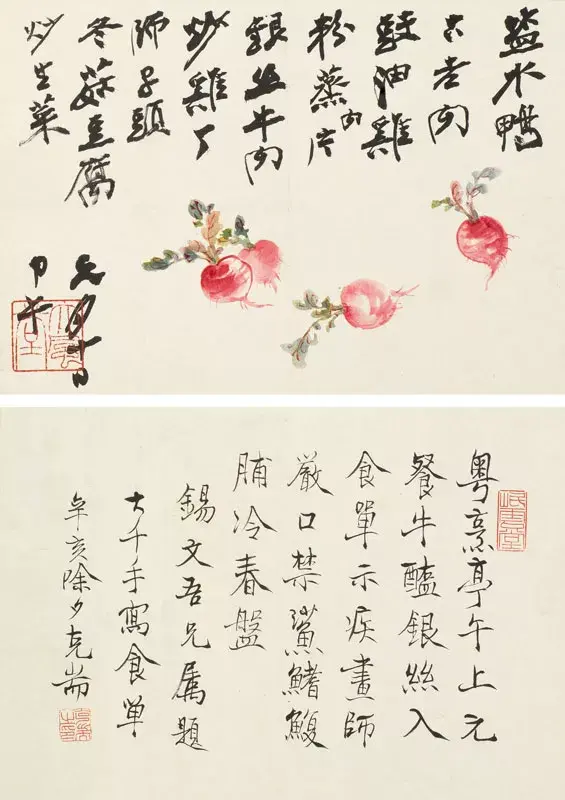 盐水鴨
古老肉
豉油雞
粉蒸肉片
銀丝牛肉
炒雞丁
师子頭
冬菇豆腐
炒生菜
元月十日
中午
大風堂
粤烹亭午上元
餐牛醢銀絲入
食單示疾畫師
嚴口禁鯊鰭鰒
脯冷春盤
錫文吾兄属題
大千手寫食单
辛亥除夕克耑